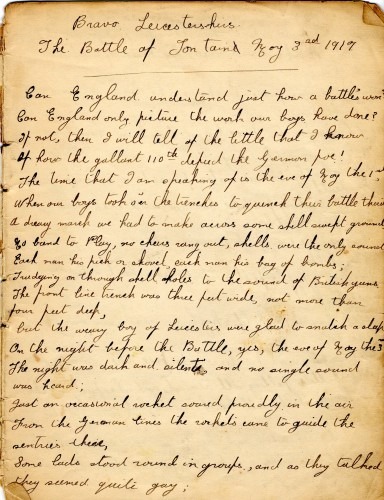 Bravo Leicesters
The Battle of Fontaine May 3rd 1917
Can England understand just how a battle's won?
Can England only picture the work our boys have done?
If not, then I will tell of the little that I know
Of how the gallant 110th defied the German foe!
The time that I am speaking of is the eve of May the 1st
When our boys took o'er the trenches to quench their battle thirst
A dreary march we had to make across some shell swept ground
No band to play, no cheers rang out, shells were the only sound
Each man his pick or shovel, each man his bag of bombs;
Trudging on through shell holes to the sound of British guns
The front line trench was three feet wide, not more than
four feet deep,
But the weary boys of Leicesters were glad to snatch a sleep
On the night before the Battle, yes, the eve of May the 3
The night was dark and silent, and no single sound
was heard;
Just an occasional rocket soared proudly in the air
From the German lines the rockets came to guide the
sentries there,
Some lads stood round in groups, and as they talked
they seemed quite gay;